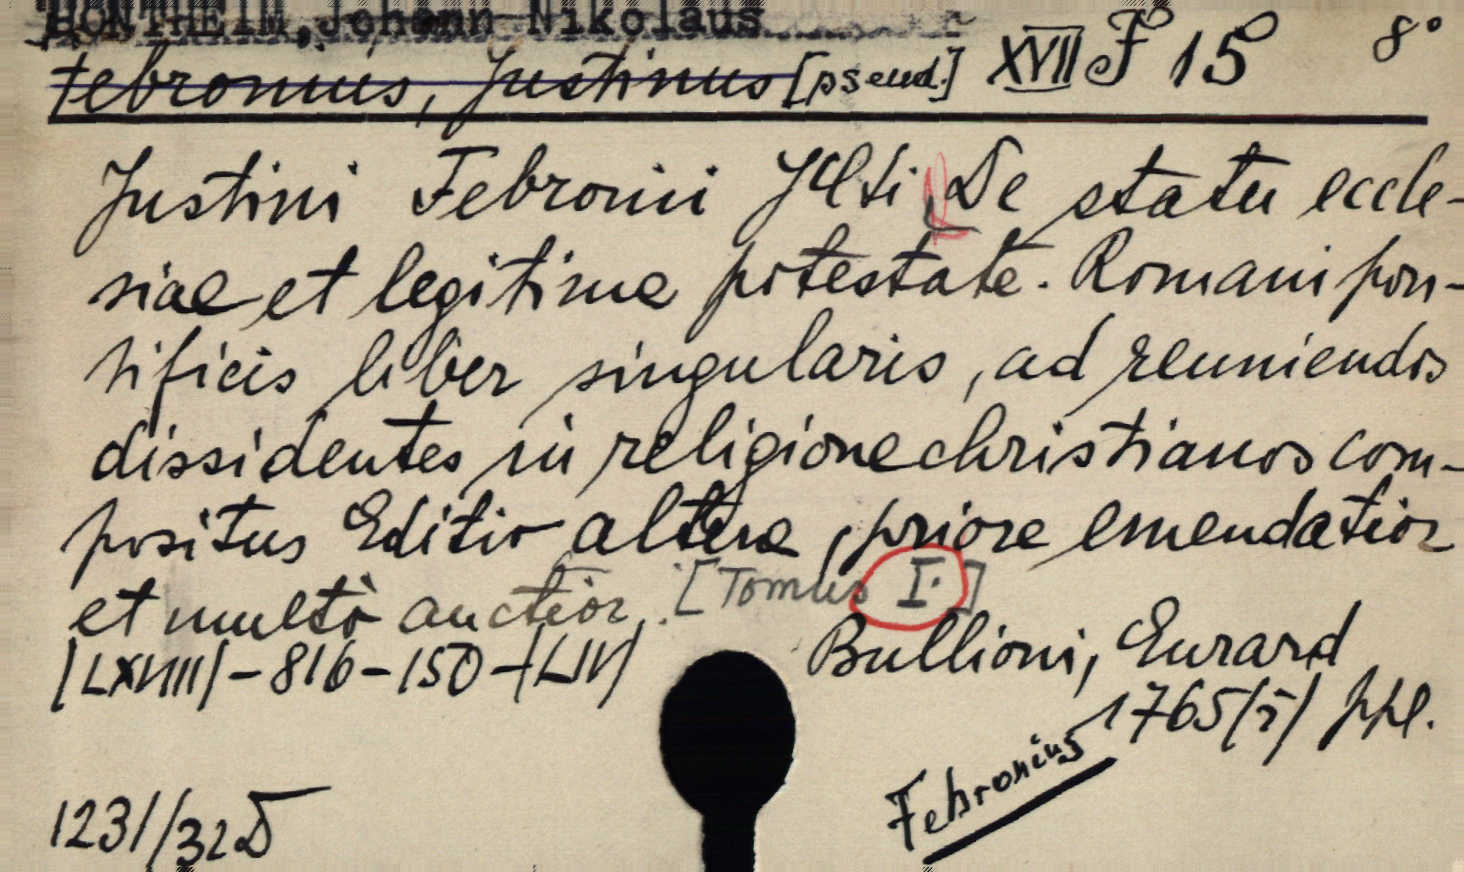 HONTHEIM, Johann Nikolaus
Febronius, Justinus [pseud.] XVII F 15 8°
Justini Febronii JCti De statu eccle-
siae et legitima potestate. Romani pon-
tificis liber singularis, ad reuniendos
dissidentes in religione christianos com-
positus Editio altera, priore emendatior
et multò auctior. [Tomus I.]
Bullioni, Eurard
[LXVIII]-816-150-[LIV]
1765(?) ppl.
Febronius
1231/32 D